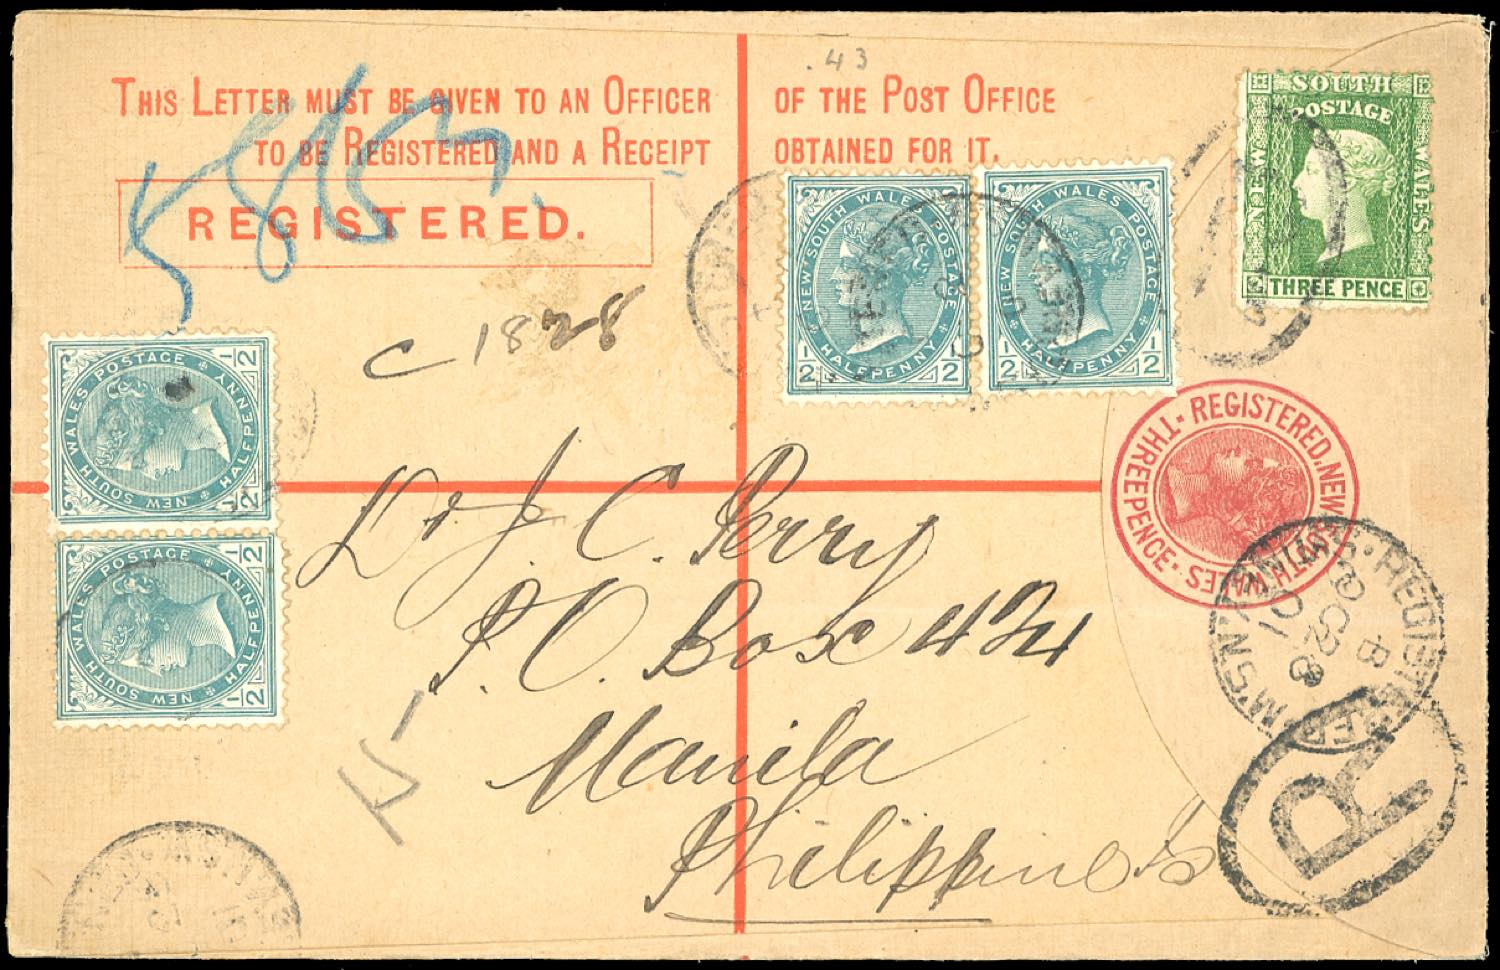 .43
THIS LETTER MUST BE GIVEN TO AN OFFICER OF THE POST OFFICE
TO BE REGISTERED AND A RECEIPT OBTAINED FOR IT.
REGISTERED.
SOUTH
POSTAGE
NEW
WALES
THREE PENCE
NEW SOUTH WALES POSTAGE
1/2 HALFPENNY 1/2
NEW SOUTH WALES POSTAGE
1/2 HALFPENNY 1/2
c 1828
NEW SOUTH WALES POSTAGE
1/2 HALFPENNY 1/2
NEW SOUTH WALES POSTAGE
1/2 HALFPENNY 1/2
REGISTERED. NEW SOUTH WALES · THREEPENCE ·
Dr J. C. Perry
P. O. Box 424
Manila
Philippines
REGISTERED
B
OC 28
01
R